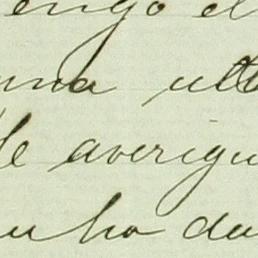 engo el
una ulti
de averigu
ucho da